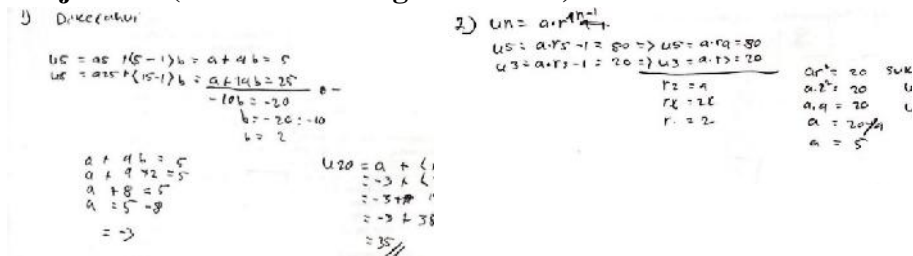 1) Diketahui
U5 = a5 +(5-1)b = a + 4b = 5
a + 14b = 25
-10b = -20
b = -20 : -10
b = 2
a + 4b = 5
a + 4 × 2 = 5
a + 8 = 5
a = 5 - 8
= -3
U20 = a + (
= -3 + (
= -3 +
= -3 + 38
= 35 //
2) Un = a.r^n-1
U5 = a.r5-1 = 80 => U5 = a.r4 = 80
U3 = a.r3-1 = 20 => U3 = a.r2 = 20
r2 = 4
r = 2
ar² = 20
a.2² = 20
a.4 = 20
a = 20/4
a = 5